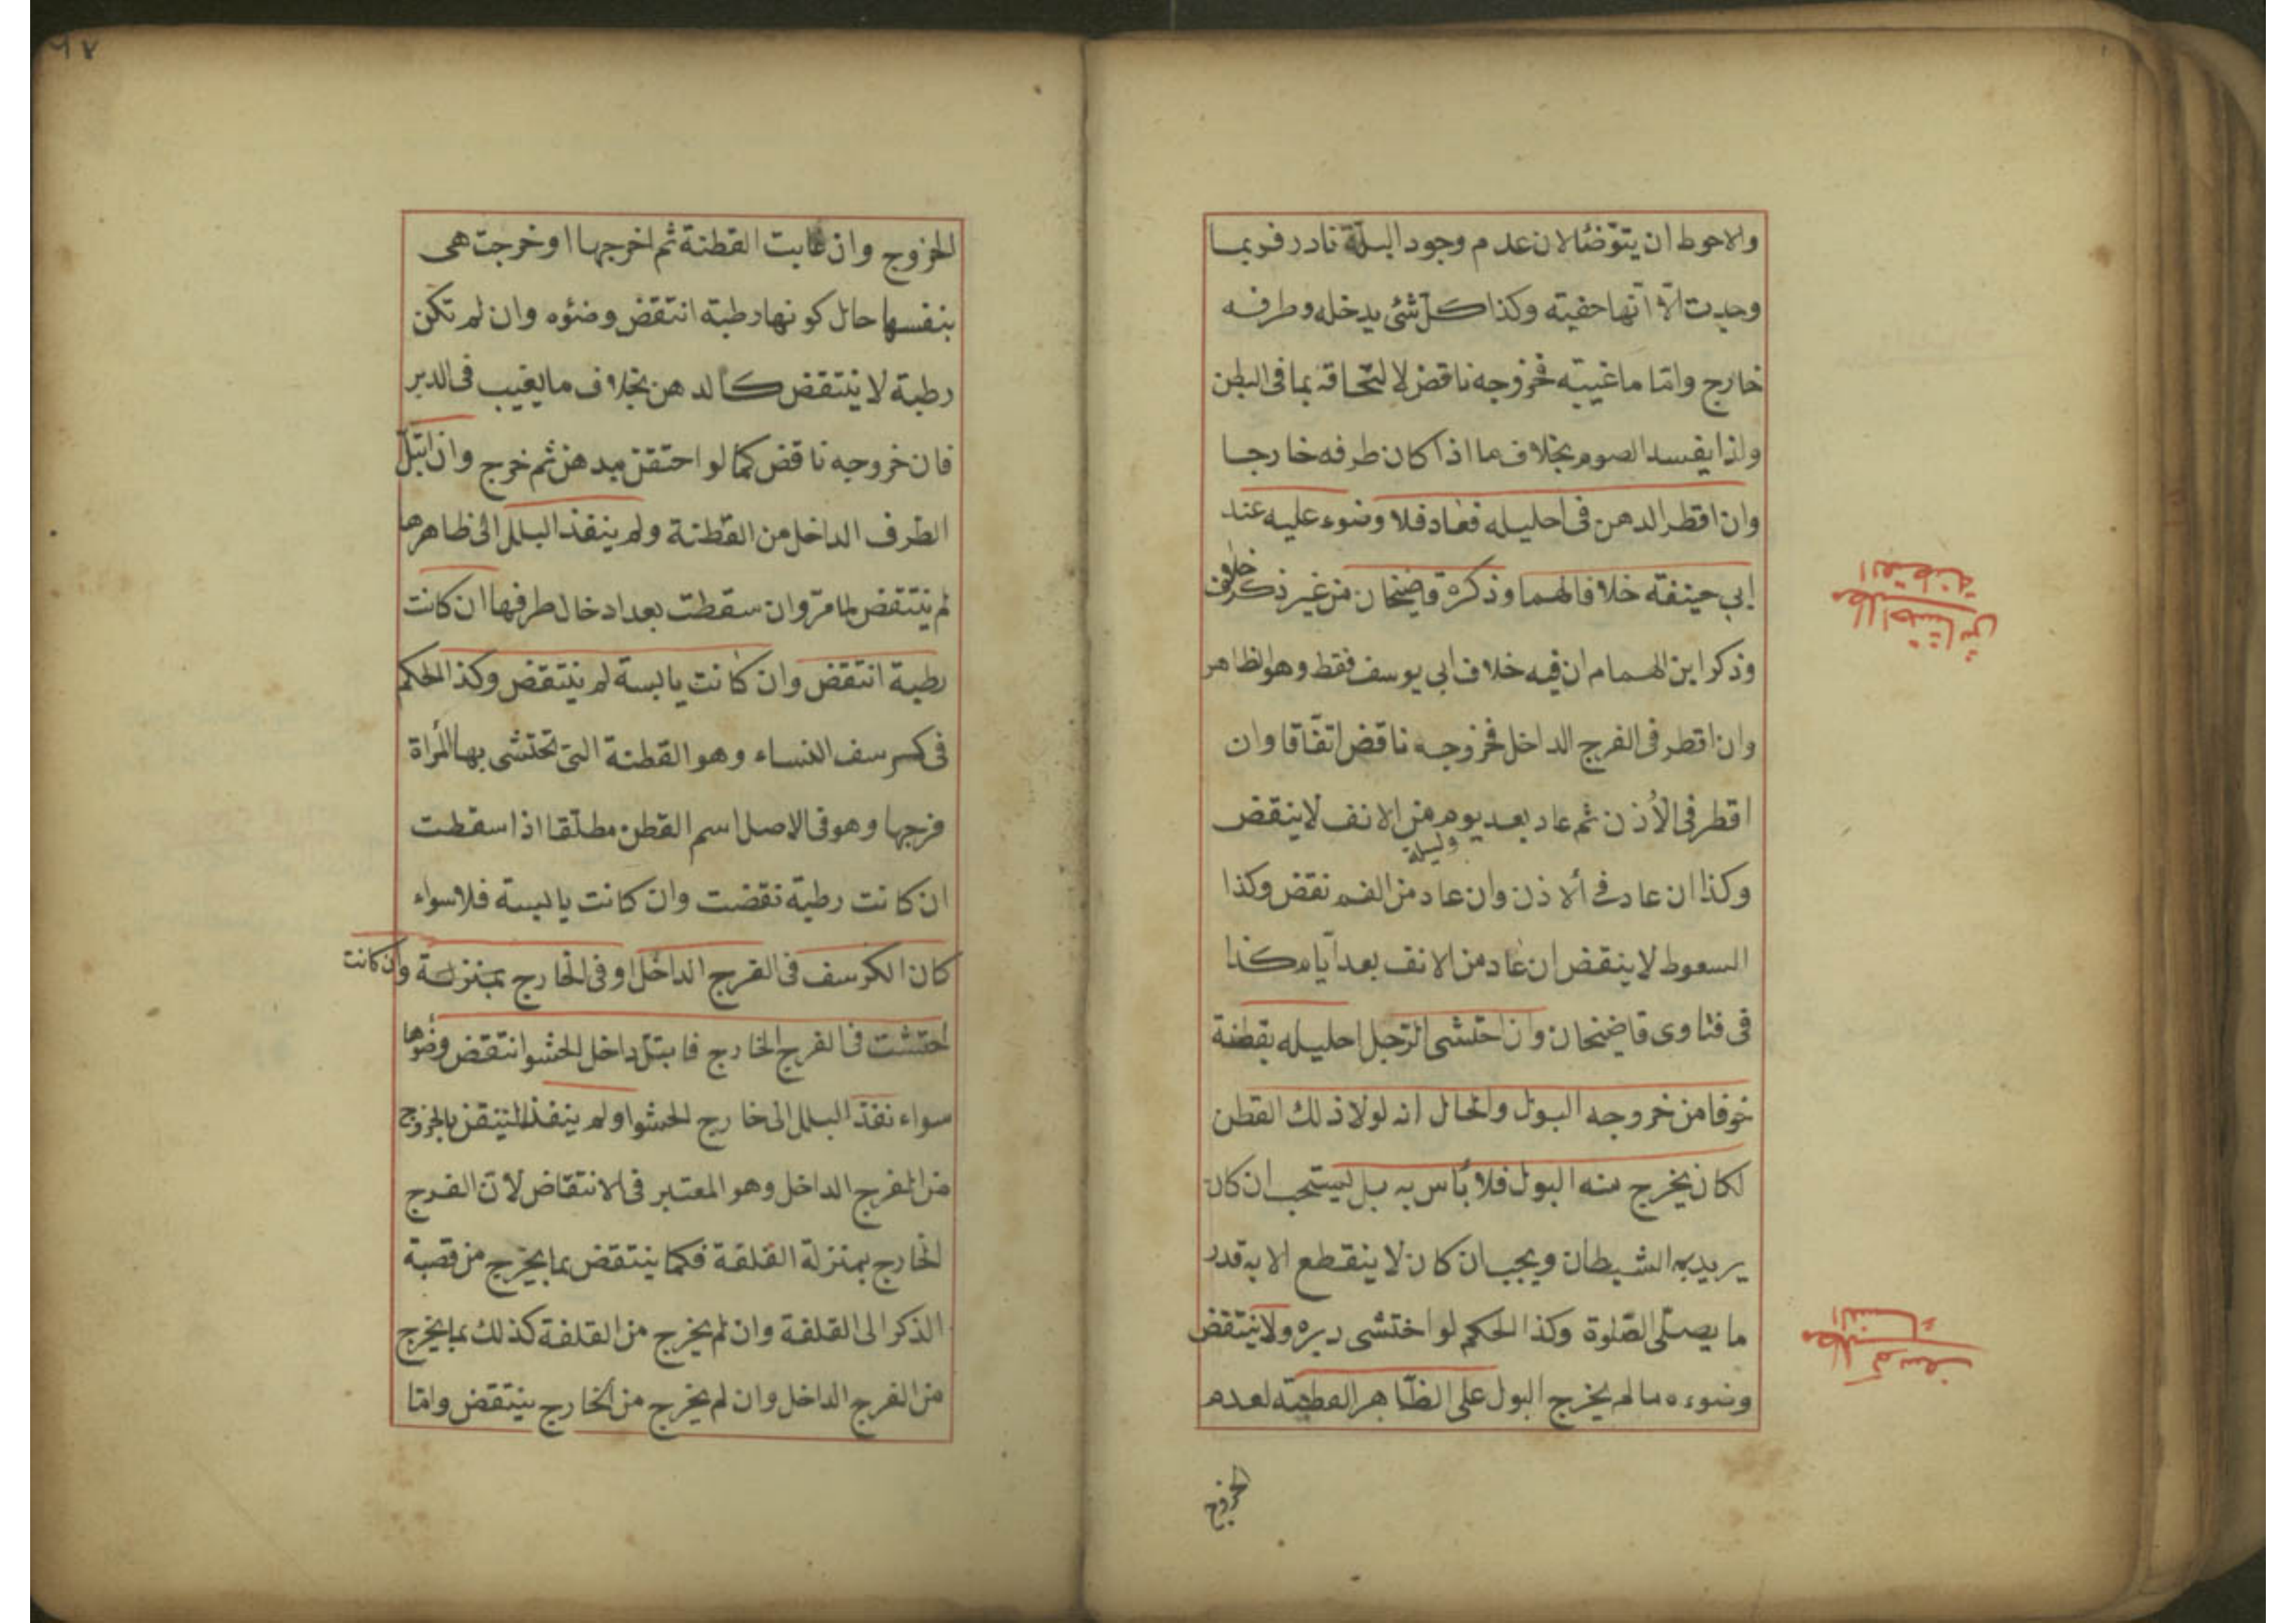 والاحوط ان يتوّضئا لان عدم وجود البلّة نادر فربما
وجدت الّا انّها خفية وكذا كلّ شئ يدخله وطرفه
خارج وامّا ما غيبّه فخروجه ناقض لا لتحاقه بما فى البطن
ولذا يفسد الصوم بخلاف ما اذا كان طرفه خارجا
وان اقطر الدهن فى احليله فعاد فلا وضوء عليه عند
ابي حينفة خلافا لهما وذكره قاضيخان من غير ذكر خلاف
وذكر ابن الهمام ان فيه خلاف ابى يوسف فقط وهو الظاهر
وان اقطر فى الفرج الداخل فخروجه ناقض اتفّاقا وان
اقطر فى الأذن ثم عاد بعد يوم وليلة من الانف لا ينقض
وكذا ان عاد فى الاذن وان عاد من الفم نقض وكذا
السعوط لا ينقض ان عاد من الانف بعد ايّام كذا
فى فتاوى قاضيخان وان احتشى الرّجل احليله بقطنة
خوفا من خروجه البول والحال انه لولا ذلك القطن
لكان يخرج منه البول فلا بأس به بل ليستحب ان كان
يريد به الشيطان ويجب ان كان لا ينقطع الا به قدر
ما يصلّى الصّلوة وكذا الحكم لو احتشى دبره ولا ينتقض
وضوءه ما لم يخرج البول على الظّاهر القطنة لعدم
الخروج
مطلب احتشاش
القطنة
مطلب كرسف
النساء
٩٧
الخروج وان غابت القطنة ثم اخرجها او خرجت هى
بنفسها حال كونها رطبة انتقض وضئوه وان لم تكن
رطبة لا ينتقض كالدهن بخلاف ما يغيب فى الدبر
فان خروجه ناقض كما لو احتقن بدهن ثم خرج وان ابتلّ
الطرف الداخل من القطنة ولم ينفذ البلل الى ظاهرها
لم ينتقض لما مرّ وان سقطت بعد ادخال طرفها ان كانت
رطبة انتقض وان كانت يابسة لم ينتقض وكذا الحكم
فى كرسف النساء وهو القطنة التى تحتشى بها المرأة
فرجها وهو فى الاصل اسم القطن مطلقا اذا سقطت
ان كانت رطبة نقضت وان كانت يابسة فلا سواء
كان الكرسف فى الفرج الداخل او فى الخارج بمنزلة وان كانت
احتشت فى الفرج الخارج فابتلّ داخل الحشو انتقض وضوها
سواء نفذ البلل الى خارج الحشو او لم ينفذ للتيقن بالخروج
من الفرج الداخل وهو المعتبر فى الانتقاض لانّ الفرج
الخارج بمنزلة القلفة فكما ينتقض بما يخرج من قصبة
الذكر الى القلفة وان لم يخرج من القلفة كذلك بما يخرج
من الفرج الداخل وان لم يخرج من الخارج ينتقض وامّا